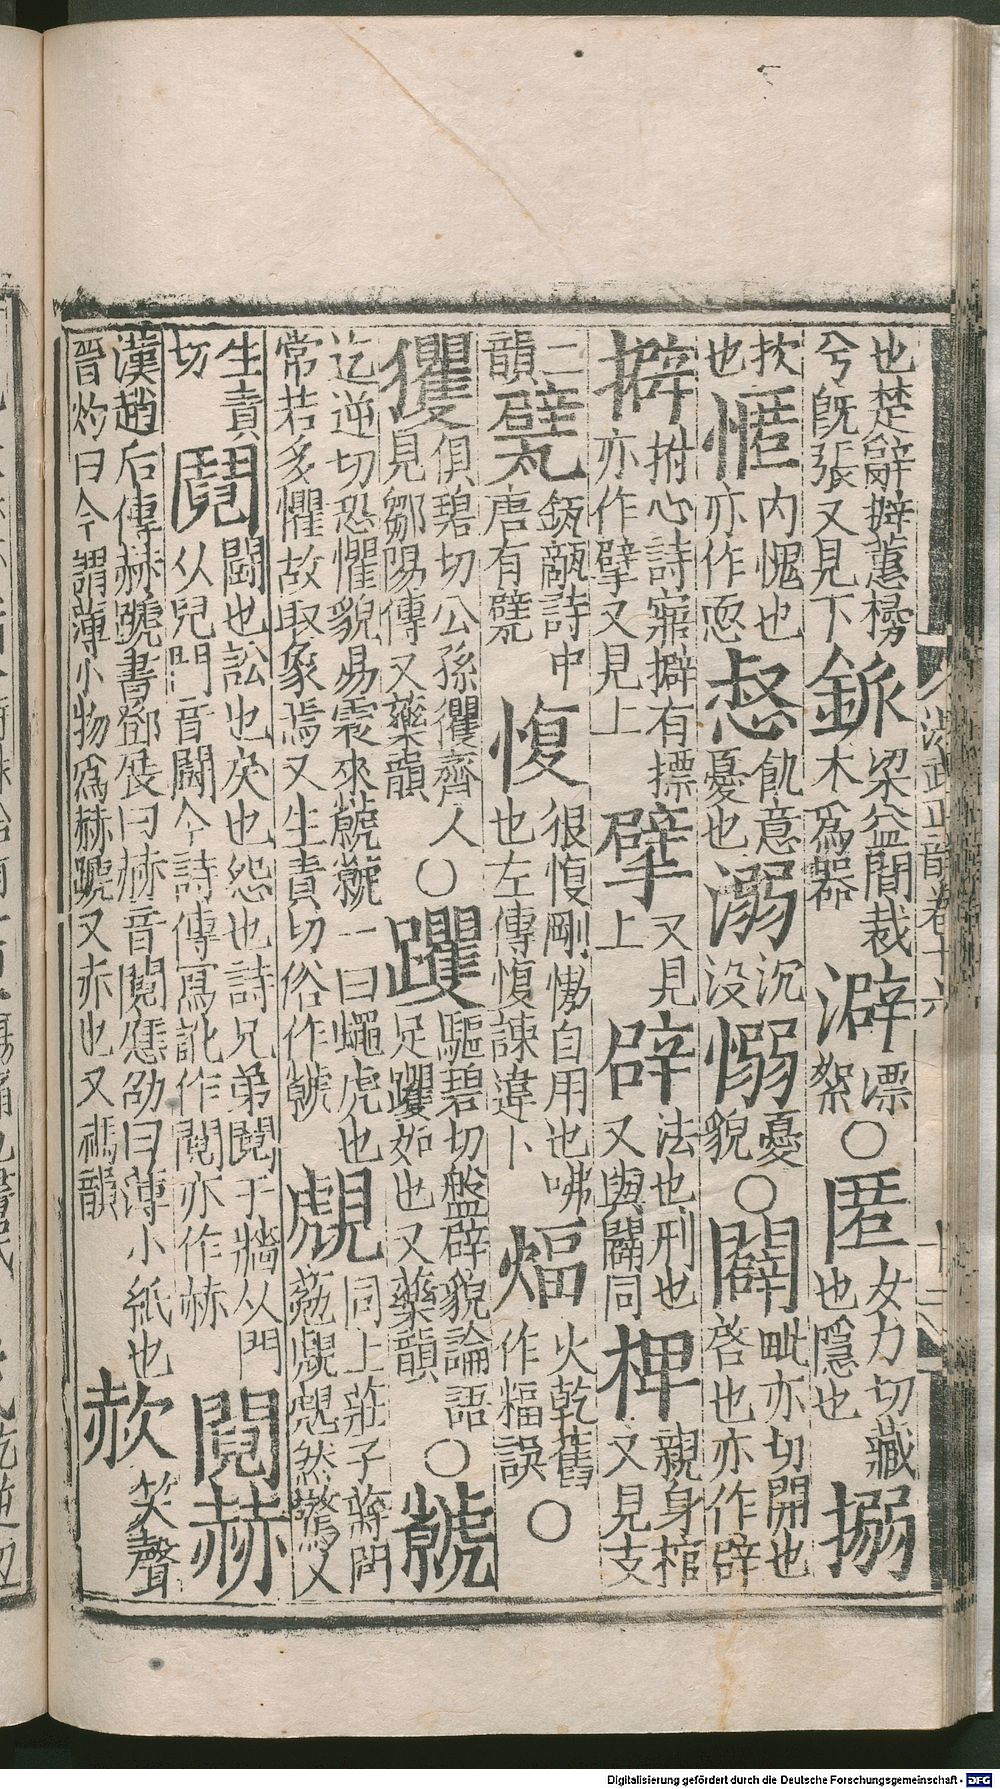 洪武正韻卷十六　十二
也楚辭擗蕙櫋兮既張又見下鈲梁益間裁木為器澼漂絮○匿女力切藏也隱也搦
抆也㥾內愧也亦作恧惄飢意憂也溺沉没愵憂貌○闢毗亦切開也啓也亦作辟
擗拊心詩寤擗有摽亦作擘又見上擘又見上辟法也刑也又與闢同椑親身棺又見支
二韻甓瓴甋詩中唐有甓愎很愎剛慠自用也咈也左傳愎諫違卜煏火乾舊作稫誤○
玃俱碧切公孫玃齊人見鄒陽傳又藥韻○躩驅碧切盤辟貌論語足躩如也又藥韻○虩
迄逆切恐懼貌易震來虩虩一曰蠅虎也常若多懼故取象焉又生責切俗作虩覤同上莊子蔣閭葂覤覤然驚又
生責切鬩鬪也訟也戾也怨也詩兄弟鬩于牆从鬥从兒鬥音鬪今詩傳寫訛作䦧亦作赫䦧赫
漢趙后傳赫蹏書鄧展曰赫音鬩應劭曰薄小紙也晉灼曰今謂薄小物為赫蹏又亦也又禡韻㰨笑聲
Digitalisierung gefördert durch die Deutsche Forschungsgemeinschaft - DFG